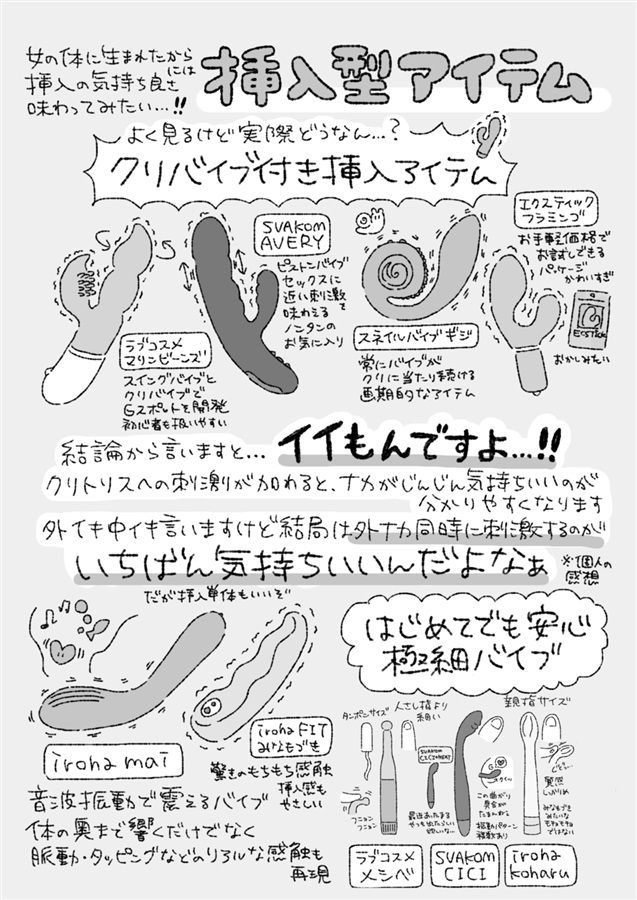 女の体に生まれたからには
挿入の気持ち良さ
味わってみたい…!!
挿入型アイテム
よく見るけど実際どうなん…?
クリバイブ付き挿入アイテム
ラブコスメ
マリンビーンズ
スイングバイブと
クリバイブで
Gスポットを開発
初心者も扱いやすい
SVAKOM
AVERY
ピストンバイブで
セックスに
近い刺激
味わえる
ノンタンの
お気に入り
スネイルバイブギジ
常にバイブが
クリに当たり続ける
画期的なアイテム
エクスティック
フラミンゴ
お手軽価格で
お試しできる
パッケージ
かわいすぎ
おかしみたい
結論から言いますと…
イイもんですよ…!!
クリトリスへの刺激が加わると、ナカがじんじん気持ちいいのが
分かりやすくなります
外イキ中イキ言いますけど結局は外ナカ同時に刺激するのが
いちばん気持ちいいんだよなぁ
※個人の
感想
だが挿入単体もいいぞ
iroha mai
音波振動で震えるバイブ
体の奥まで響くだけでなく
脈動・タッピングなどのリアルな感触も
再現
iroha FIT
みなもづき
驚きのもちもち感触
挿入感も
やさしい
はじめてでも安心
極細バイブ
タンポンサイズ
フニョン
フニョン
ラブコスメ
メシベ
人さし指より
細い
SVAKOM
CICI
この曲がり
具合が
たまんねぇ
振動パターン
複数あり
親指サイズ
質感
しかりめ
みなもづき
みたいな
もちもち
ではない
iroha
koharu